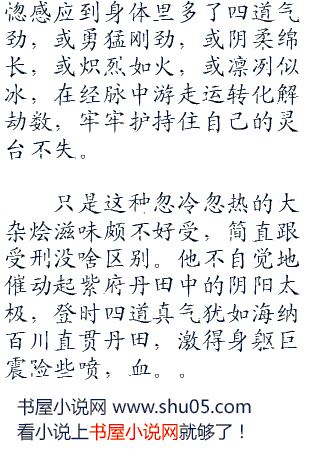 惚感应到身体里多了四道气
劲，或勇猛刚劲，或阴柔绵
长，或炽烈如火，或凛冽似
冰，在经脉中游走运转化解
劫数，牢牢护持住自己的灵
台不失。
只是这种忽冷忽热的大
杂烩滋味颇不好受，简直跟
受刑没啥区别。他不自觉地
催动起紫府丹田中的阴阳太
极，登时四道真气犹如海纳
百川直贯丹田，激得身躯巨
震险些喷，血。。
书屋小说网 www.shu05.com
看小说上书屋小说网就够了！